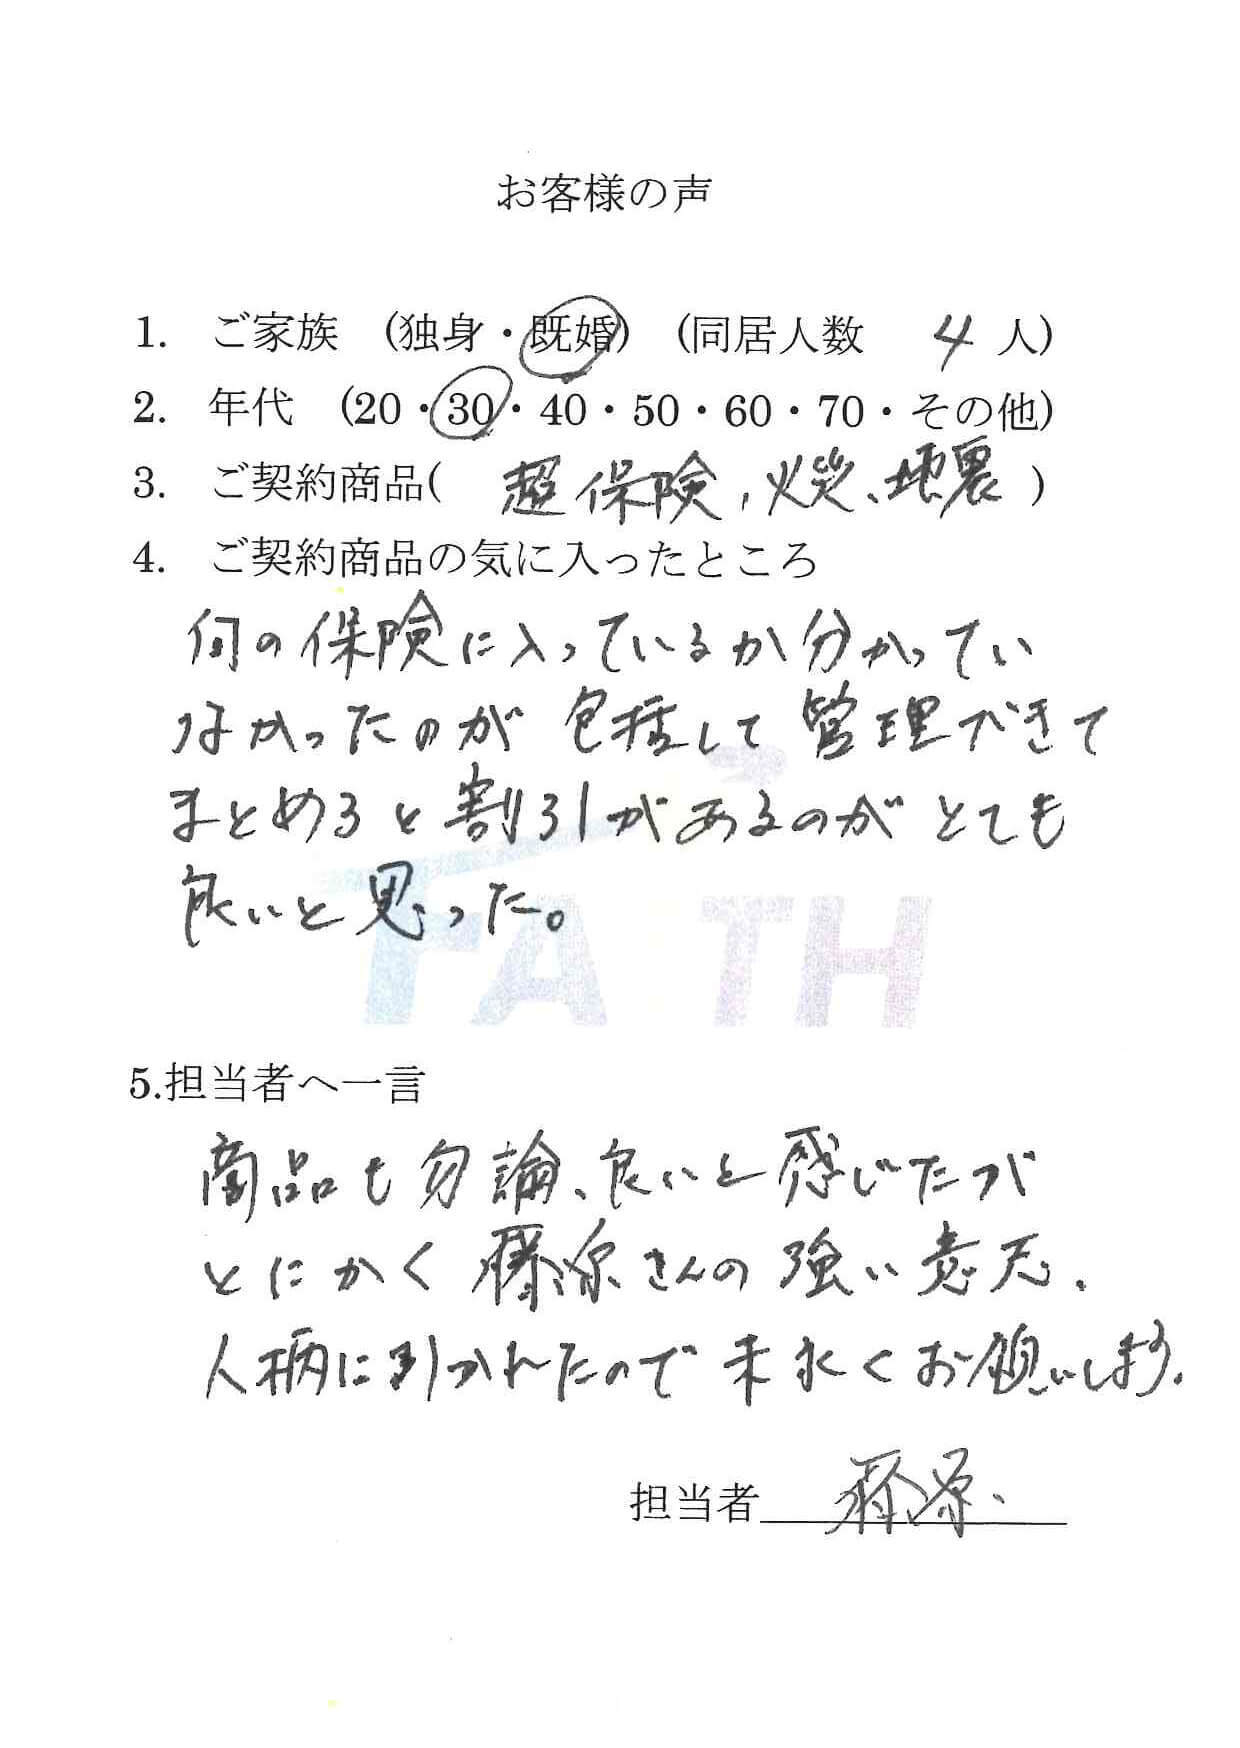 お客様の声
1. ご家族 (独身・既婚) (同居人数 4 人)
2. 年代 (20・30・40・50・60・70・その他)
3. ご契約商品( 超保険,火災、地震 )
4. ご契約商品の気に入ったところ
何の保険に入っているか分かってい
なかったのが 包括して 管理できて
まとめると割引があるのが とても
良いと思った。
FAITH
5.担当者へ一言
商品も勿論、良いと感じたが
とにかく 藤原さんの 強い意志、
人柄に引かれたので 末永くお願いします。
担当者 藤原